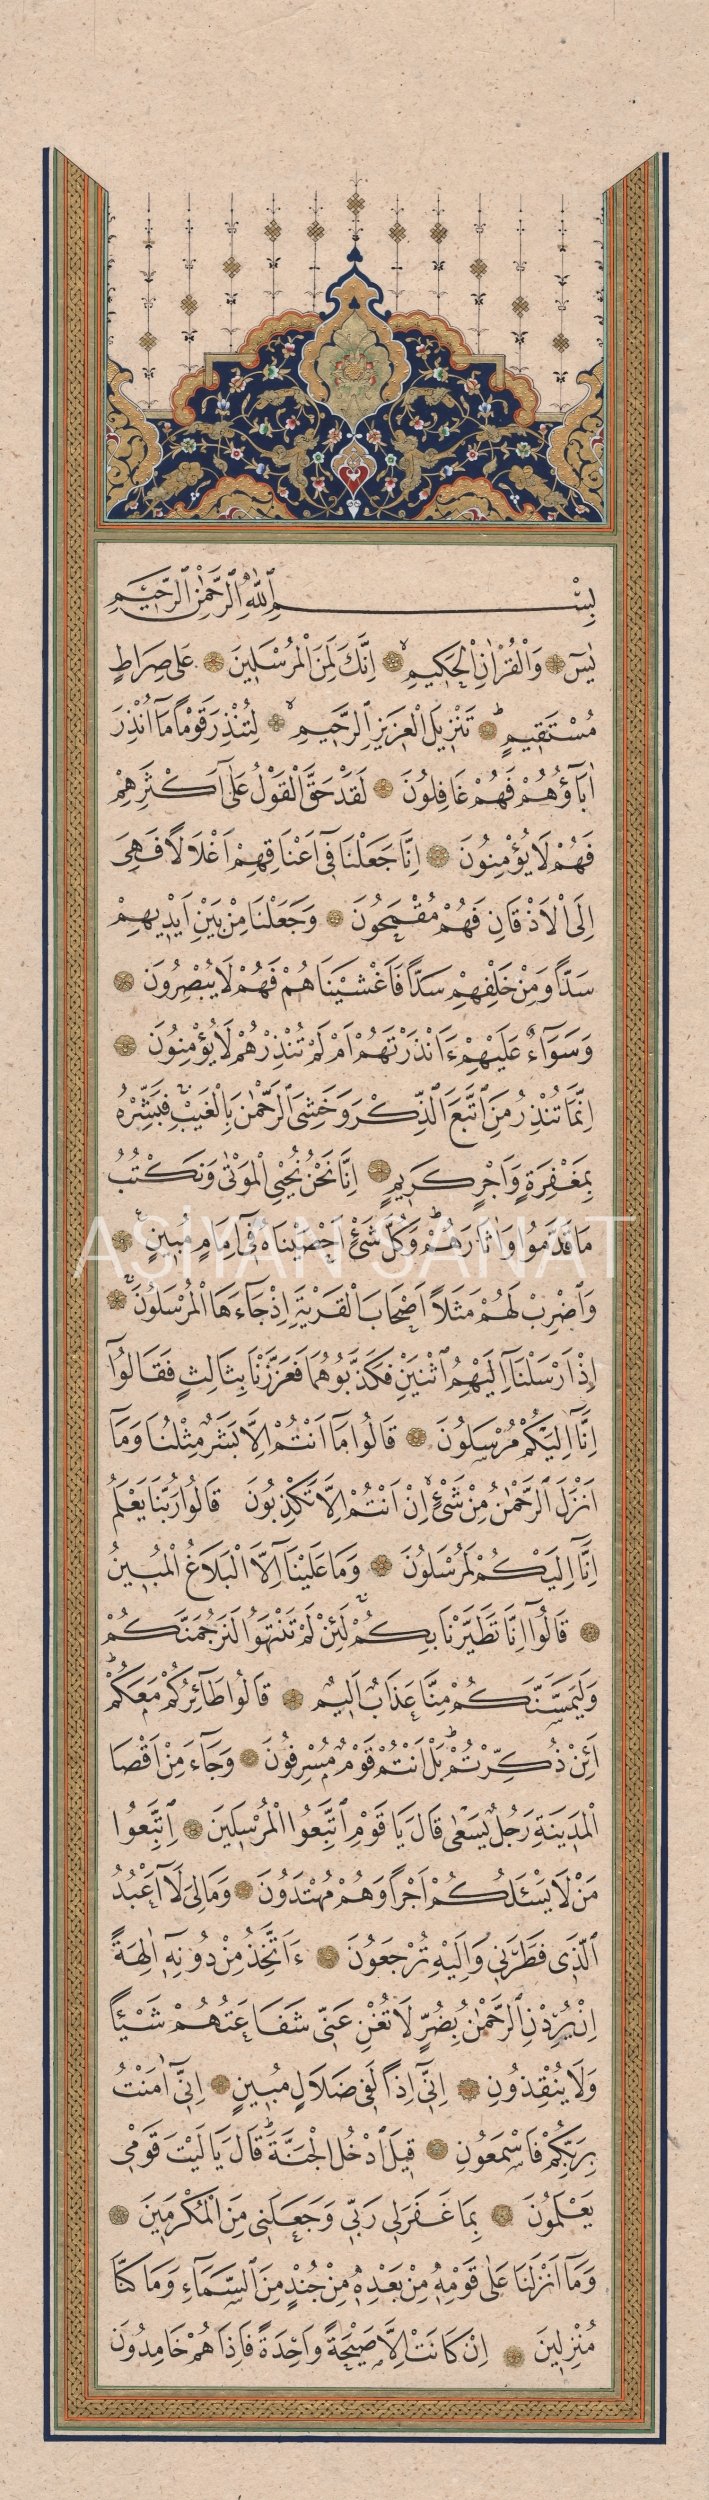 بِسْمِ اللّٰهِ الرَّحْمٰنِ الرَّحِيمِ
يٰسٓ وَالْقُرْاٰنِ الْحَكِيمِۙ اِنَّكَ لَمِنَ الْمُرْسَلِينَ عَلٰى صِرَاطٍ
مُسْتَقِيمٍۜ تَنْزِيلَ الْعَزِيزِ الرَّحِيمِۙ لِتُنْذِرَ قَوْمًا مَٓا اُنْذِرَ
اٰبَٓاؤُهُمْ فَهُمْ غَافِلُونَ لَقَدْ حَقَّ الْقَوْلُ عَلٰٓى اَكْثَرِهِمْ
فَهُمْ لَا يُؤْمِنُونَ اِنَّا جَعَلْنَا فِٓى اَعْنَاقِهِمْ اَغْلَالًا فَهِىَ
اِلَى الْاَذْقَانِ فَهُمْ مُقْمَحُونَ وَجَعَلْنَا مِنْ بَيْنِ اَيْدِيهِمْ
سَدًّا وَمِنْ خَلْفِهِمْ سَدًّا فَاَغْشَيْنَاهُمْ فَهُمْ لَا يُبْصِرُونَ
وَسَوَٓاءٌ عَلَيْهِمْ ءَاَنْذَرْتَهُمْ اَمْ لَمْ تُنْذِرْهُمْ لَا يُؤْمِنُونَ
اِنَّمَا تُنْذِرُ مَنِ اتَّبَعَ الذِّكْرَ وَخَشِىَ الرَّحْمٰنَ بِالْغَيْبِۚ فَبَشِّرْهُ
بِمَغْفِرَةٍ وَاَجْرٍ كَرِيمٍ اِنَّا نَحْنُ نُحْيِى الْمَوْتٰى وَنَكْتُبُ
مَا قَدَّمُوا وَاٰثَارَهُمْۜ وَكُلَّ شَىْءٍ اَحْصَيْنَاهُ فِٓى اِمَامٍ مُبِينٍ۟
ASIYAN SANAT
وَاضْرِبْ لَهُمْ مَثَلًا اَصْحَابَ الْقَرْيَةِۢ اِذْ جَٓاءَهَا الْمُرْسَلُونَۚ
اِذْ اَرْسَلْنَٓا اِلَيْهِمُ اثْنَيْنِ فَكَذَّبُوهُمَا فَعَزَّزْنَا بِثَالِثٍ فَقَالُٓوا
اِنَّٓا اِلَيْكُمْ مُرْسَلُونَ قَالُوا مَٓا اَنْتُمْ اِلَّا بَشَرٌ مِثْلُنَا وَمَٓا
اَنْزَلَ الرَّحْمٰنُ مِنْ شَىْءٍۙ اِنْ اَنْتُمْ اِلَّا تَكْذِبُونَ قَالُوا رَبُّنَا يَعْلَمُ
اِنَّٓا اِلَيْكُمْ لَمُرْسَلُونَ وَمَا عَلَيْنَٓا اِلَّا الْبَلَاغُ الْمُبِينُ
قَالُٓوا اِنَّا تَطَيَّرْنَا بِكُمْۚ لَئِنْ لَمْ تَنْتَهُوا لَنَرْجُمَنَّكُمْ
وَلَيَمَسَّنَّكُمْ مِنَّا عَذَابٌ اَلِيمٌ قَالُوا طَٓائِرُكُمْ مَعَكُمْۜ
اَئِنْ ذُكِّرْتُمْۜ بَلْ اَنْتُمْ قَوْمٌ مُسْرِفُونَ وَجَٓاءَ مِنْ اَقْصَا
الْمَدِينَةِ رَجُلٌ يَسْعٰى قَالَ يَا قَوْمِ اتَّبِعُوا الْمُرْسَلِينَ اِتَّبِعُوا
مَنْ لَا يَسْـَٔلُكُمْ اَجْرًا وَهُمْ مُهْتَدُونَ وَمَا لِىَ لَٓا اَعْبُدُ
الَّذِى فَطَرَنِى وَاِلَيْهِ تُرْجَعُونَ ءَاَتَّخِذُ مِنْ دُونِهِٓ اٰلِهَةً
اِنْ يُرِدْنِ الرَّحْمٰنُ بِضُرٍّ لَا تُغْنِ عَنِّى شَفَاعَتُهُمْ شَيْـًٔا
وَلَا يُنْقِذُونِ اِنِّٓى اِذًا لَفِى ضَلَالٍ مُبِينٍ اِنِّٓى اٰمَنْتُ
بِرَبِّكُمْ فَاسْمَعُونِ قِيلَ ادْخُلِ الْجَنَّةَۜ قَالَ يَا لَيْتَ قَوْمِى
يَعْلَمُونَ بِمَا غَفَرَ لِى رَبِّى وَجَعَلَنِى مِنَ الْمُكْرَمِينَ
وَمَٓا اَنْزَلْنَا عَلٰى قَوْمِهِ مِنْ بَعْدِهِ مِنْ جُنْدٍ مِنَ السَّمَٓاءِ وَمَا كُنَّا
مُنْزِلِينَ اِنْ كَانَتْ اِلَّا صَيْحَةً وَاحِدَةً فَاِذَا هُمْ خَامِدُونَ